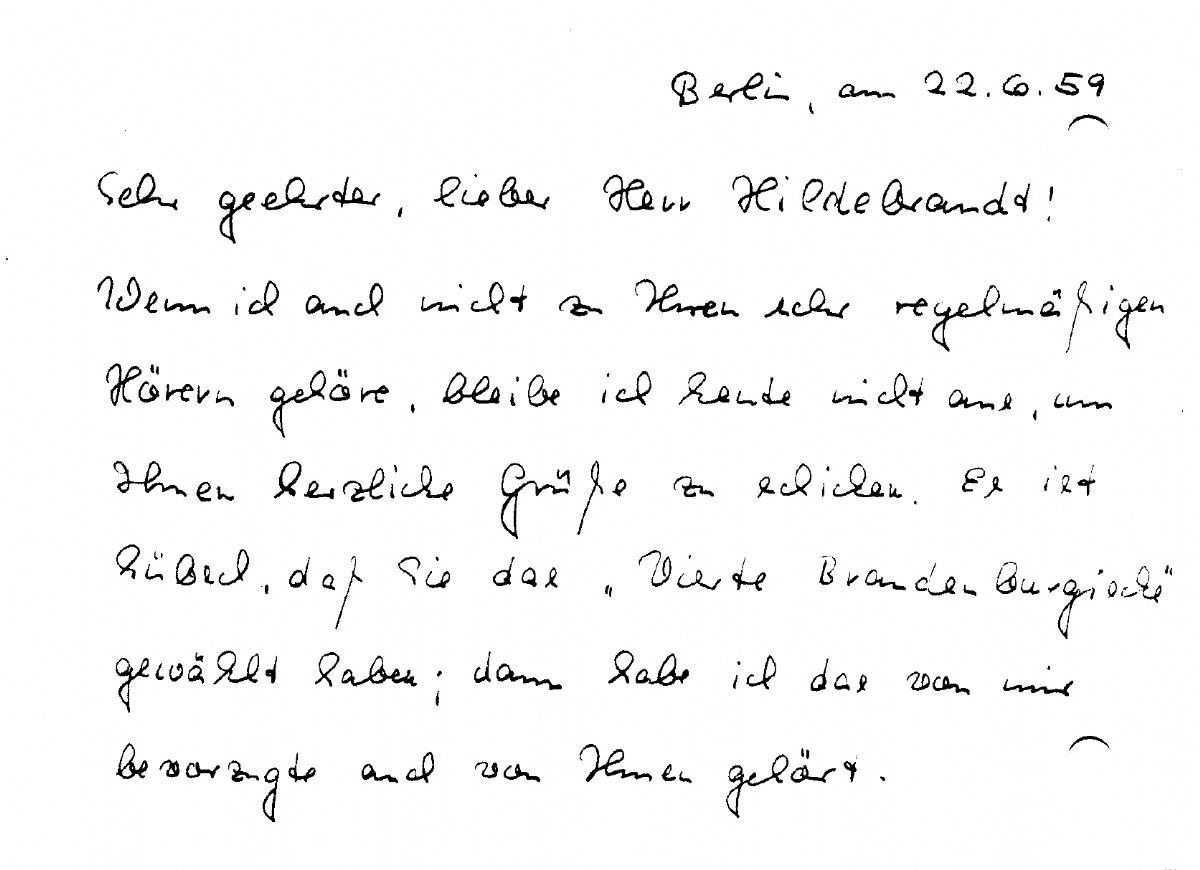 Berlin, am 22.6.59
Sehr geehrter, lieber Herr Hildebrandt!
Wenn ich auch nicht zu Ihren sehr regelmäßigen
Hörern gehöre, bleibe ich heute nicht aus, um
Ihnen herzliche Grüße zu schicken. Es ist
hübsch, daß Sie das „Vierte Brandenburgische“
gewählt haben; dann habe ich das von mir
bevorzugte auch von Ihnen gehört.